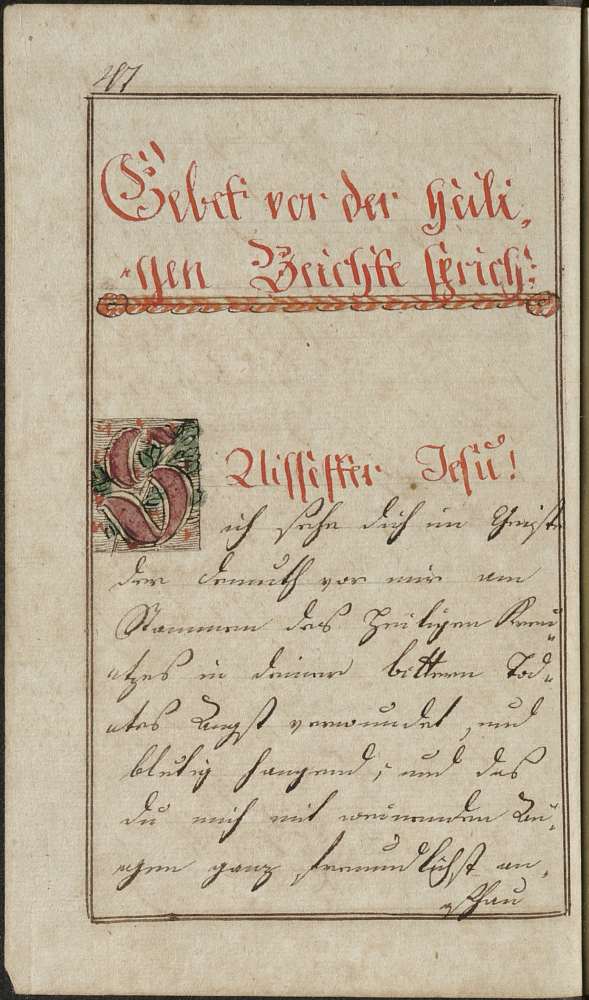 47
Gebet vor der heili,
„gen Beichte sprich:
S Üissister Jesu!
ich sehe dich im Geiste
der demuth vor mir am
Stammen des heiligen Kreu„
„tzes in deiner bittern Tod„
„tes Angst verwundet, und
blutig hangend; und das
du mich mit weinenden Au„
„gen ganz freundlichst an„
„schau